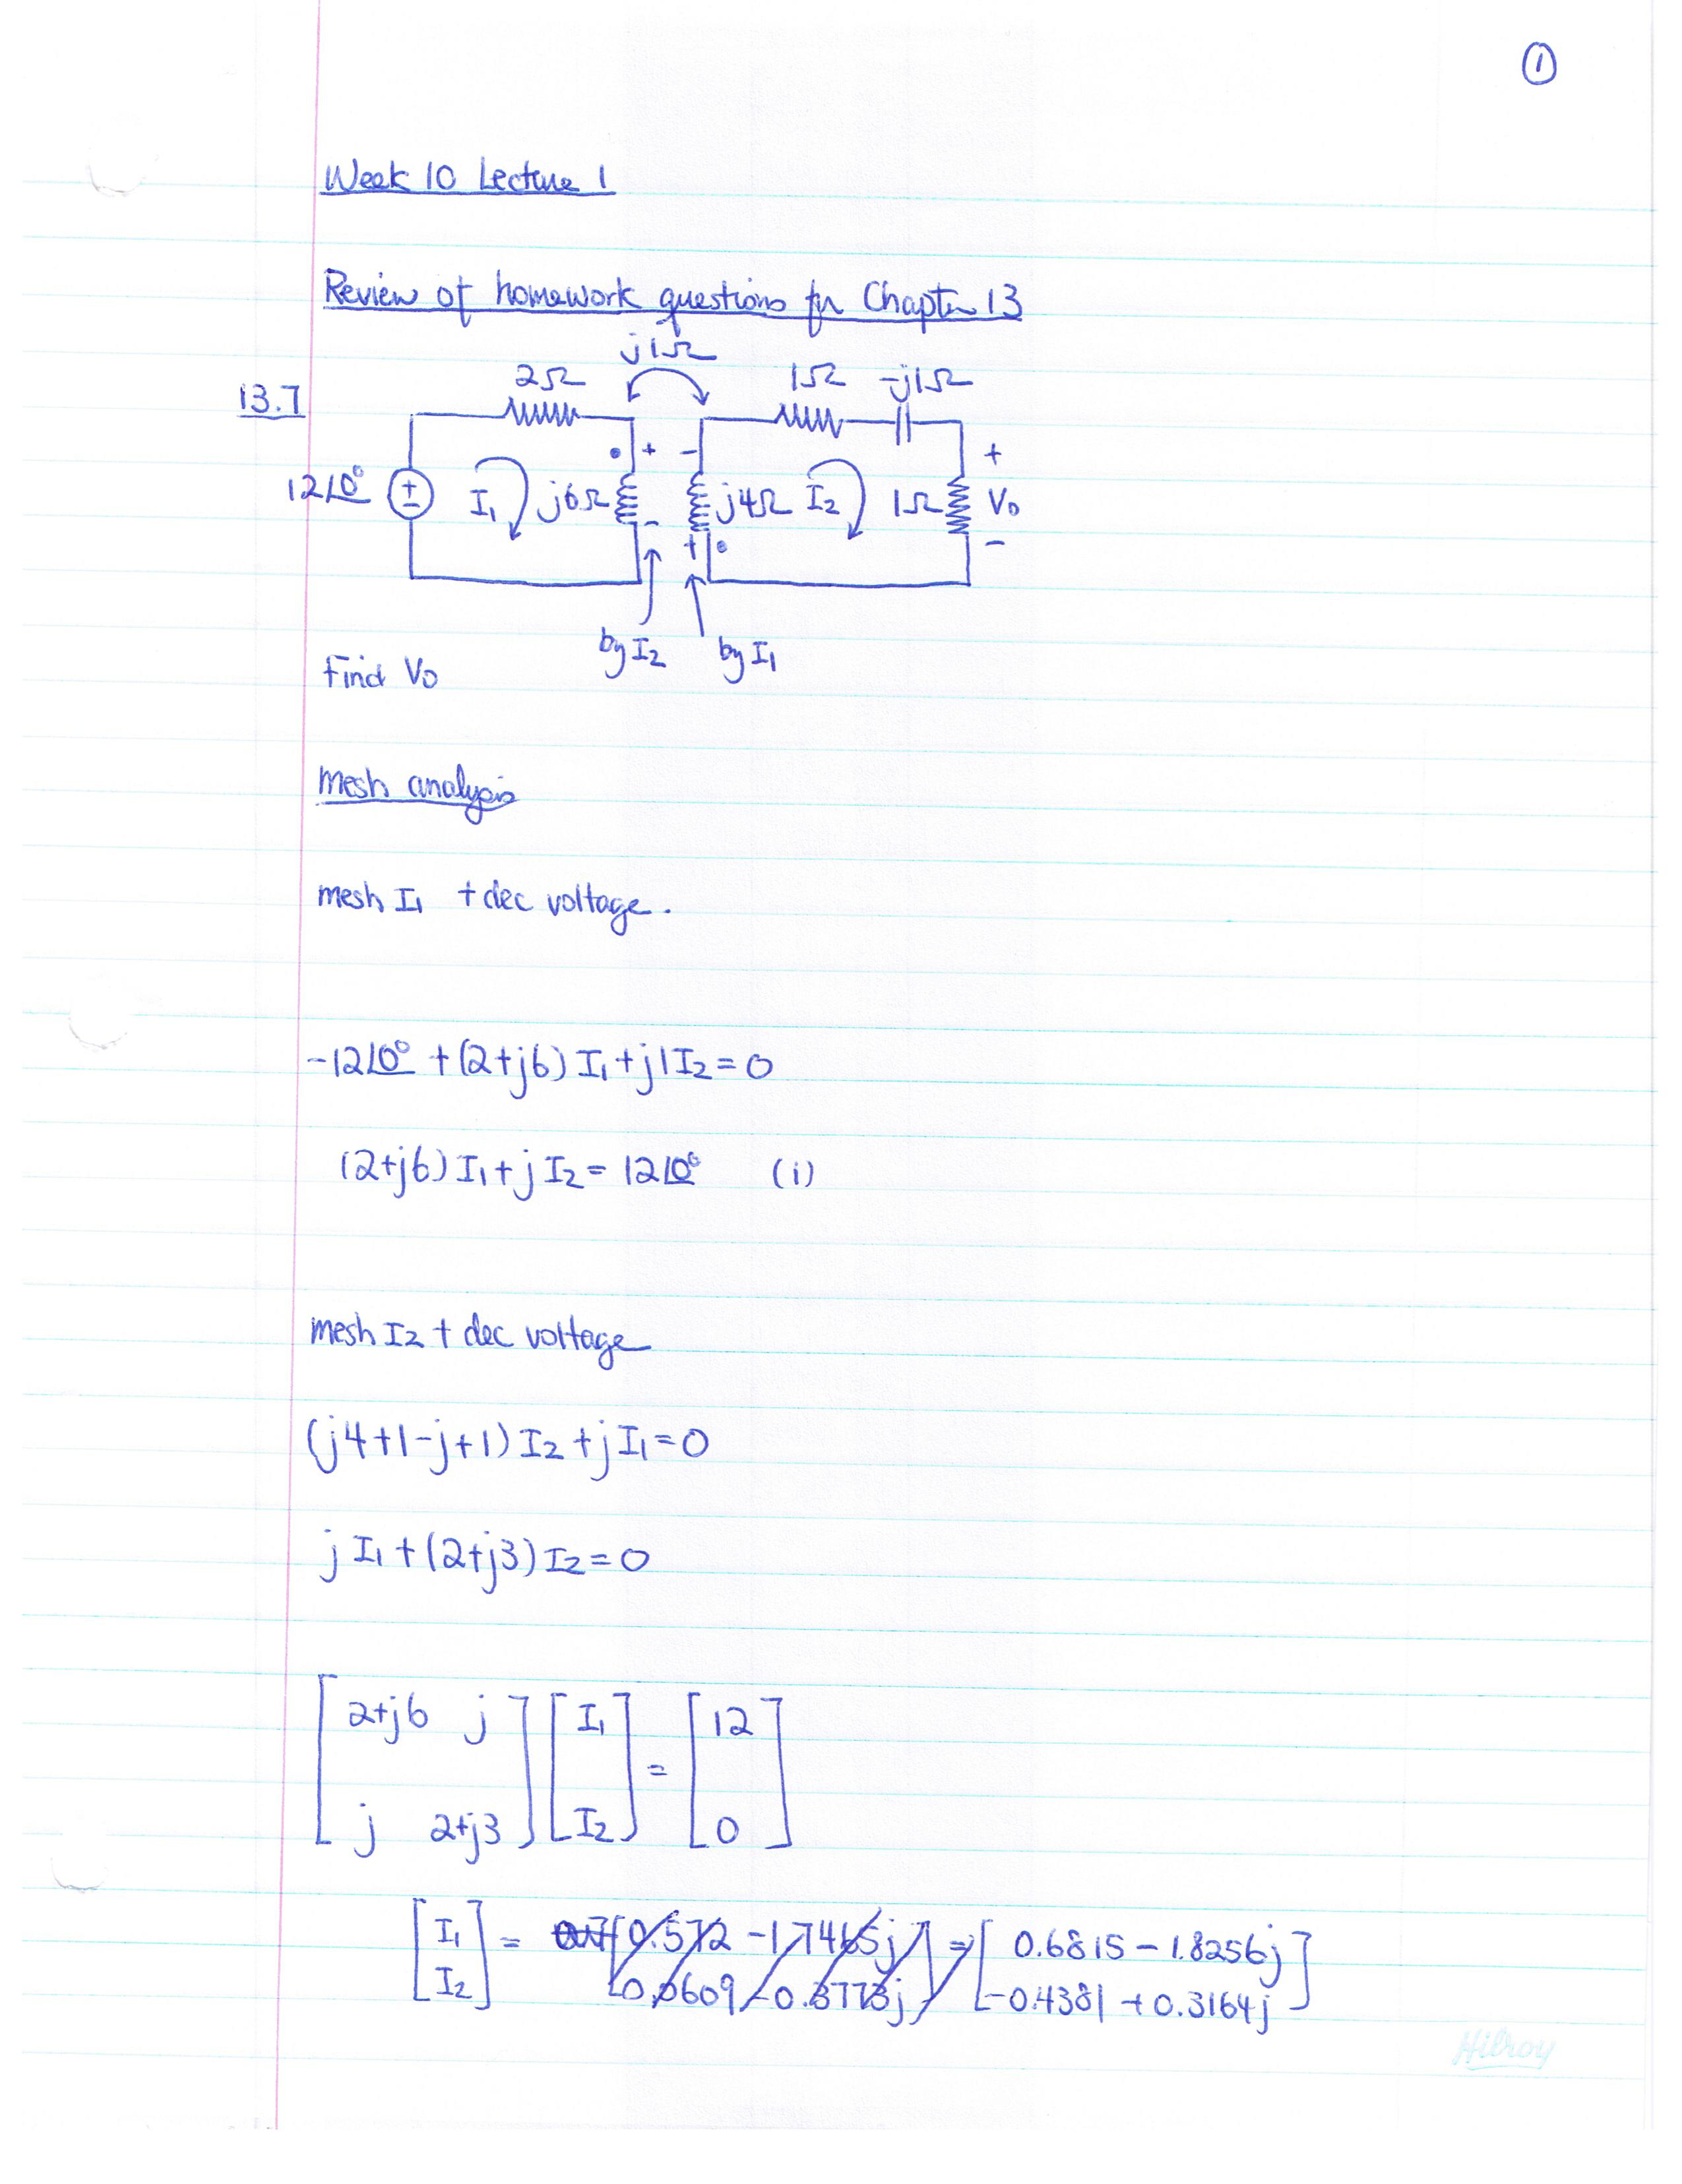 ①
Week 10 Lecture 1
Review of homework questions for Chapter 13
13.7
j1Ω
2Ω 1Ω -j1Ω
12∠0° + - I₁ j6Ω + - - + j4Ω I₂ 1Ω + V₀ -
by I₂ by I₁
Find V₀
Mesh analysis
mesh I₁ + dec voltage.
-12∠0° + (2+j6) I₁ + j1 I₂ = 0
(2+j6) I₁ + j I₂ = 12∠0° (i)
mesh I₂ + dec voltage
(j4+1-j+1) I₂ + j I₁ = 0
j I₁ + (2+j3) I₂ = 0
[2+j6 j] [I₁] = [12]
[j 2+j3] [I₂] [0]
[I₁] = [0.572 -1.7465j] = [0.6815 - 1.8256j]
[I₂] [0.0609 -0.3773j] [-0.4381 + 0.3164j]
Hilroy